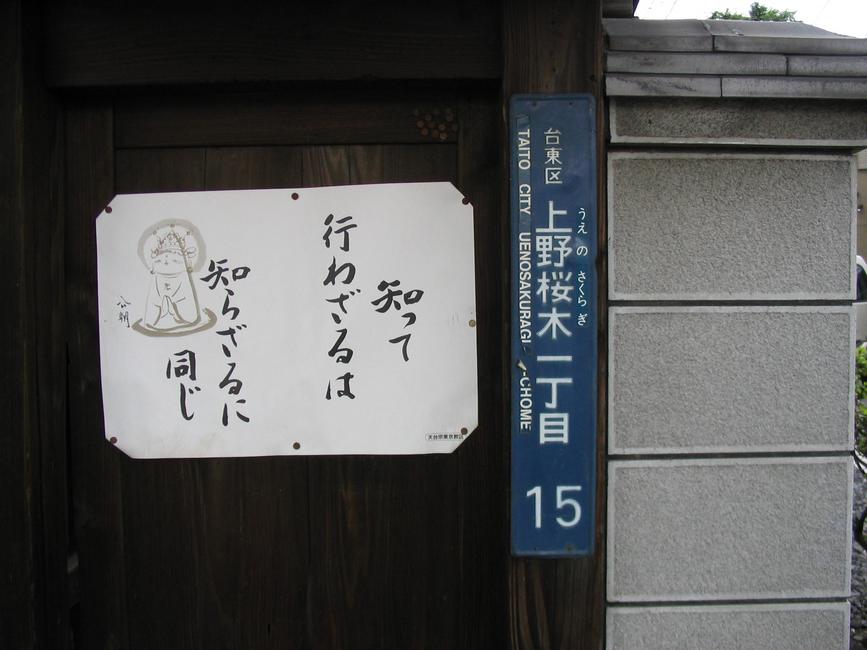 知って
行わざるは
知らざるに
同じ
公朝
天台宗東京教区
台東区
上野桜木一丁目
うえの さくらぎ
15
TAITO CITY UENOSAKURAGI 1-CHOME